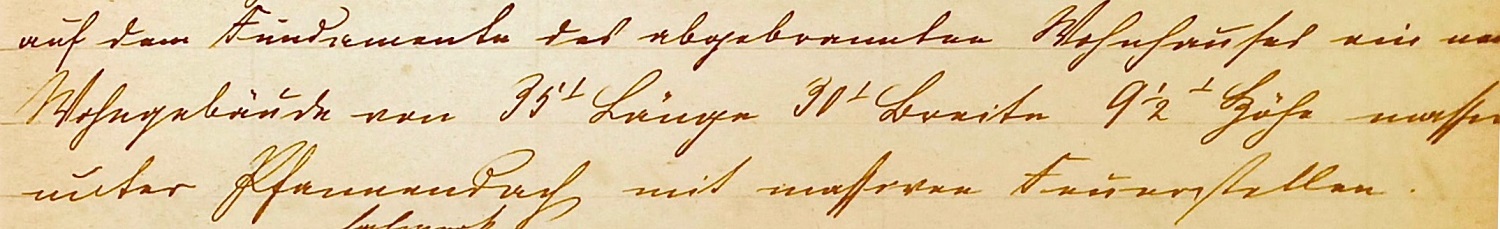 auf dem Fundamente des abgebrannten Wohnhauses ein
Wohngebäude von 35' Länge 30' Breite 9½' Höhe massiv
unter Pfannendach mit massiven Feuerstellen.